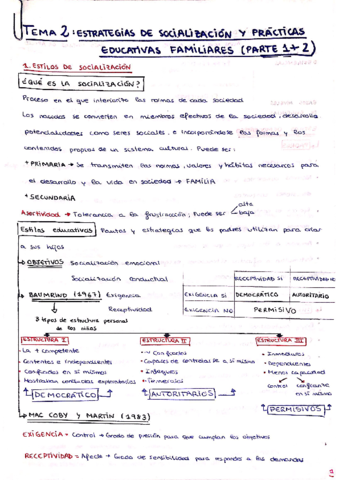 TEMA 2: ESTRATEGIAS DE SOCIALIZACIÓN Y PRÁCTICAS
EDUCATIVAS FAMILIARES (PARTE 1+2)
1. ESTILOS DE SOCIALIZACIÓN
¿QUÉ ES LA SOCIALIZACIÓN?
Proceso en el que interioriza las normas de cada sociedad
Los nacidos se convierten en miembros efectivos de la sociedad, desarrolla
potencialidades como seres sociales, e incorporándole las formas y los
contenidos propios de un sistema cultural. Puede ser:
* PRIMARIA → Se transmiten las normas, valores y hábitos necesarios para
el desarrollo y la vida en sociedad → FAMILIA
* SECUNDARIA
Asertividad → Tolerancia a la frustracción, Puede ser alta
baja
Estilos educativos Pautas y estrategias que los padres utilizan para criar
a sus hijos
OBJETIVOS Socialización emocional
Socialización conductual
RECEPTIVIDAD SI RECEPTIVIDAD NO
BAUMRIND (1967) Exigencia
EXIGENCIA SI DEMOCRÁTICO AUTORITARIO
Receptividad
EXIGENCIA NO PERMISIVO
3 tipos de estructura personal
de los niños
ESTRUCTURA I ESTRUCTURA II ESTRUCTURA III
• La + competente
• Contentos e Independientes
• Confiados en sí mismos
• Mostraban conductas exploratorias
DEMOCRÁTICO
• Confiados
• Capaces de controlarse a sí mismo
• Temerosos
AUTORITARIOS
• Inmaduros
• Dependientes
• Menos capacidad
control confiarse
en sí mismo
PERMISIVOS
MAC COBY Y MARTÍN (1983)
EXIGENCIA = Control → Grado de presión para que cumplan los objetivos
RECEPTIVIDAD = Afecto → Grado de sensibilidad para responder a las demandas